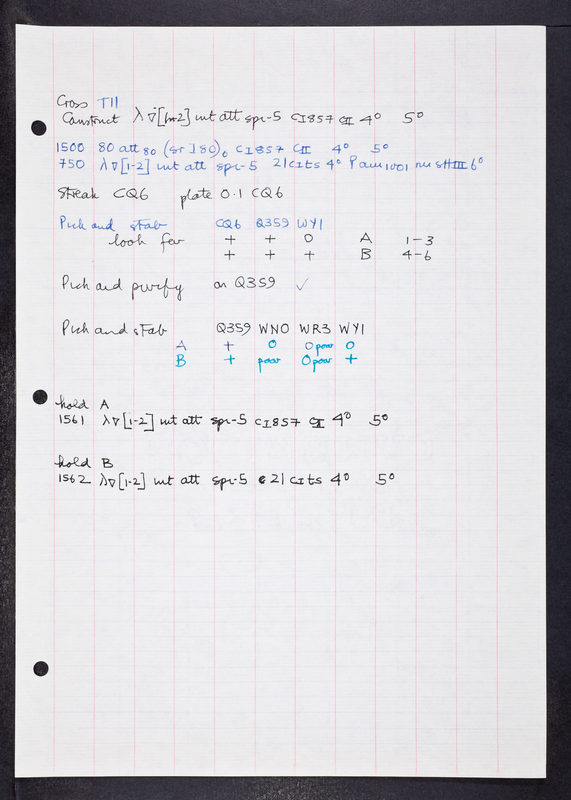 Cross T11
Construct λ ∇[1-2] int att spi-5 CI857 CII 4° 5°
1500 80 att80 (sr I 80)0 CI857 CII 4° 5°
750 λ∇[1-2] int att spi-5 21 CIts 4° Pam1001 nu SHIII 6°
Streak CQ6 plate 0.1 CQ6
Pick and stab CQ6 Q359 WY1
look for + + 0 A 1-3
+ + + B 4-6
Pick and purify on Q359 ✓
Pick and stab Q359 WNO WR3 WY1
A + 0 0 poor 0
B + poor 0 poor +
hold A
1561 λ∇[1-2] int att spi-5 CI857 CII 4° 5°
hold B
1562 λ∇[1-2] int att spi-5 21 CIts 4° 5°